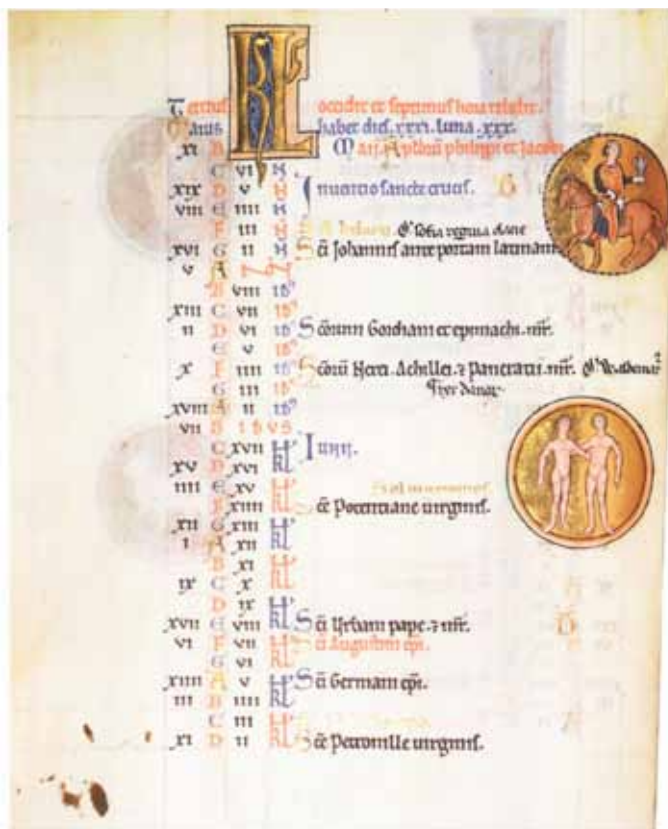 KL
Tercius occidit et septimus hora relidit.
Maius habet dies. xxxi. luna. xxx.
xi B Maij. Aplõꝝ philippi et Jacobi
C vi N
xix D v N Inuentio sancte crucis. D
viii E iiii N
F iii N Obˀ Sofia regina dane
xvi G ii N Sc̄i Johannis ante portam latinam
v A N
B viii idˀ
xiii C vii idˀ
ii D vi idˀ Sc̄orum Gordiani et epimachi. mr̄.
E v idˀ
x F iiii idˀ Sc̄orū Nerei. Achillei. ⁊ Pancratii. mr̄.
G iii idˀ
xviii A ii idˀ
vii B IDVS
C xvii kl' Iunii.
xv D xvi kl'
iiii E xv kl'
F xiiii kl' Sc̄e Potentiane uirginis.
xii G xiii kl'
i A xii kl'
B xi kl'
ix C x kl'
D ix kl'
xvii E viii kl' Sc̄i Urbani pape. ⁊ mr̄. D
vi F vii kl' Sc̄i Augustini ep̄i.
G vi kl'
xiiii A v kl' Sc̄i Germani ep̄i.
iii B iiii kl'
C iii kl'
xi D ii kl' Sc̄e Petronille uirginis.